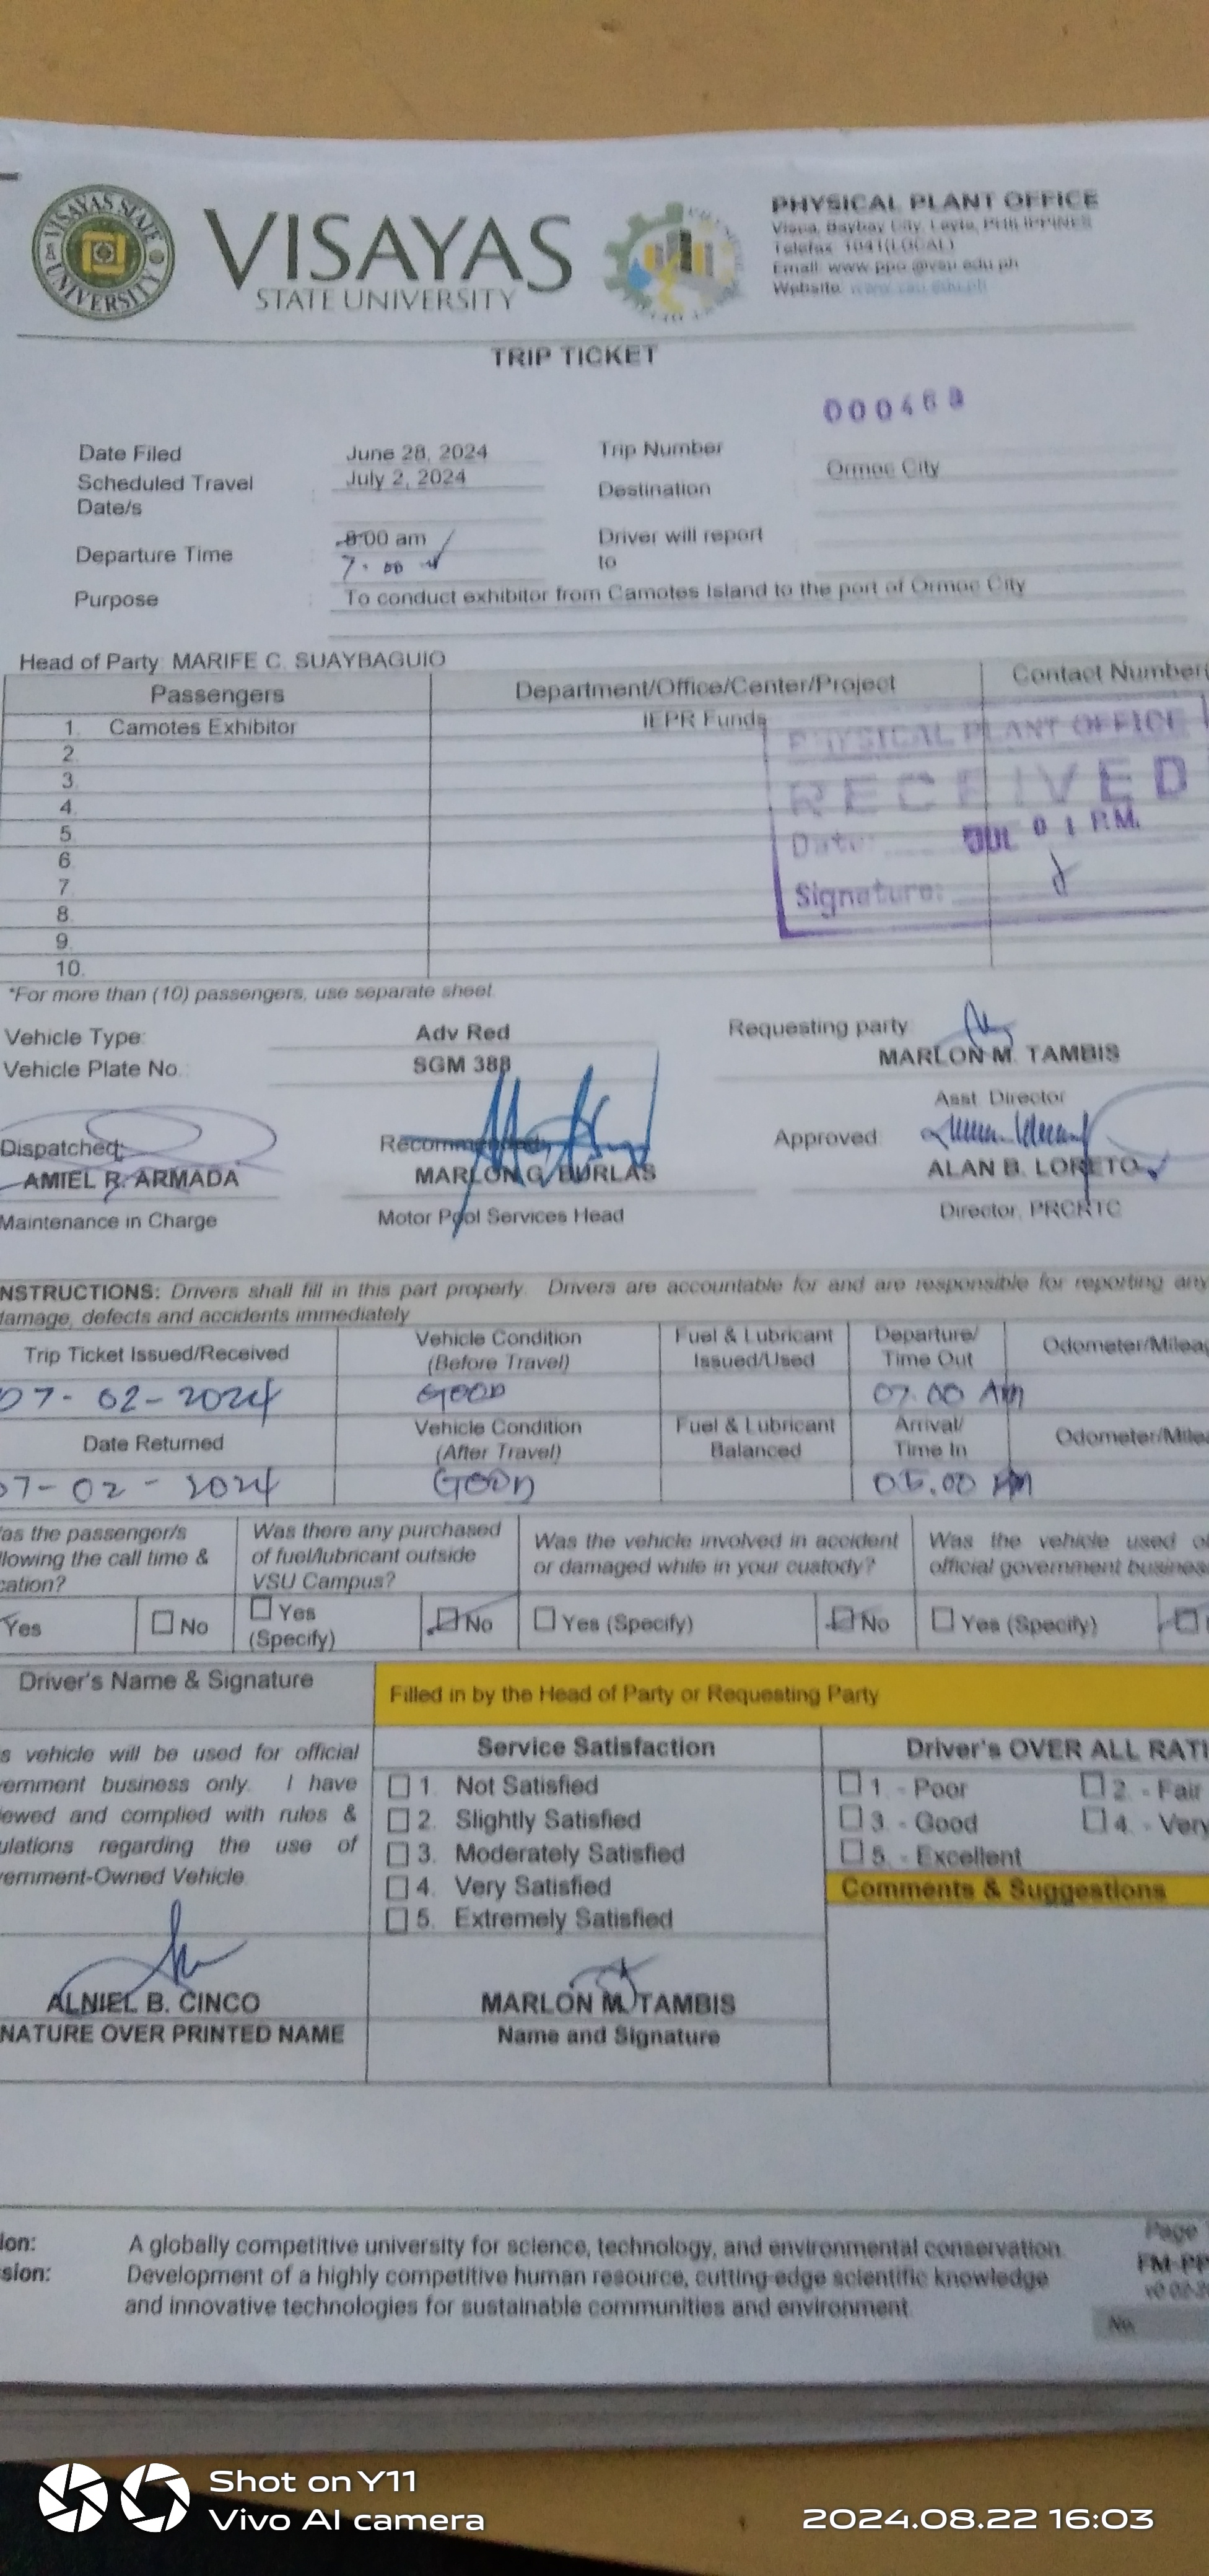 VISAYAS STATE UNIVERSITY
VISAYAS
STATE UNIVERSITY
PHYSICAL PLANT OFFICE
Visca, Baybay City, Leyte, PHILIPPINES
Telefax: 1041(LOCAL)
Email: www.ppo.@vsu.edu.ph
Website: www.vsu.edu.ph
TRIP TICKET
Date Filed : June 28, 2024 Trip Number
Scheduled Travel Date/s : July 2, 2024 Destination Ormoc City
Departure Time : 8:00 am Driver will report to
7:00
Purpose : To conduct exhibitor from Camotes Island to the port of Ormoc City
Head of Party: MARIFE C. SUAYBAGUIO
Passengers Department/Office/Center/Project Contact Number
1. Camotes Exhibitor IEPR Funds
2.
3.
4.
5.
6.
7.
8.
9.
10.
PHYSICAL PLANT OFFICE
RECEIVED
Date: JUL 01 P.M.
Signature:
*For more than (10) passengers, use separate sheet.
Vehicle Type: Adv Red Requesting party:
Vehicle Plate No.: SGM 388 MARLON M. TAMBIS
Asst. Director
Dispatched: Recommended: Approved:
AMIEL R. ARMADA MARLON G. BURLAS ALAN B. LORETO
Maintenance in Charge Motor Pool Services Head Director, PRCRTC
NSTRUCTIONS: Drivers shall fill in this part properly. Drivers are accountable for and are responsible for reporting any
damage, defects and accidents immediately
Trip Ticket Issued/Received Vehicle Condition (Before Travel) Fuel & Lubricant Issued/Used Departure/ Time Out Odometer/Mileag
07-02-2024 GOOD 07:00 AM
Date Returned Vehicle Condition (After Travel) Fuel & Lubricant Balanced Arrival/ Time In Odometer/Milea
07-02-2024 GOOD 05:00 PM
as the passenger/s
llowing the call time &
cation?
Was there any purchased
of fuel/lubricant outside
VSU Campus?
Was the vehicle involved in accident
or damaged while in your custody?
Was the vehicle used
official government business
Yes No Yes (Specify) No Yes (Specify) No Yes (Specify)
Driver's Name & Signature Filled in by the Head of Party or Requesting Party
s vehicle will be used for official
ernment business only. I have
iewed and complied with rules &
ulations regarding the use of
vernment-Owned Vehicle.
Service Satisfaction
1. Not Satisfied
2. Slightly Satisfied
3. Moderately Satisfied
4. Very Satisfied
5. Extremely Satisfied
Driver's OVER ALL RATI
1. - Poor 2. - Fair
3. - Good 4. - Very
5. - Excellent
Comments & Suggestions
ALNIEL B. CINCO MARLON M. TAMBIS
NATURE OVER PRINTED NAME Name and Signature
ion: A globally competitive university for science, technology, and environmental conservation.
sion: Development of a highly competitive human resource, cutting-edge scientific knowledge
and innovative technologies for sustainable communities and environment.
Page
FM-PP
No.
Shot on Y11
Vivo AI camera
2024.08.22 16:03